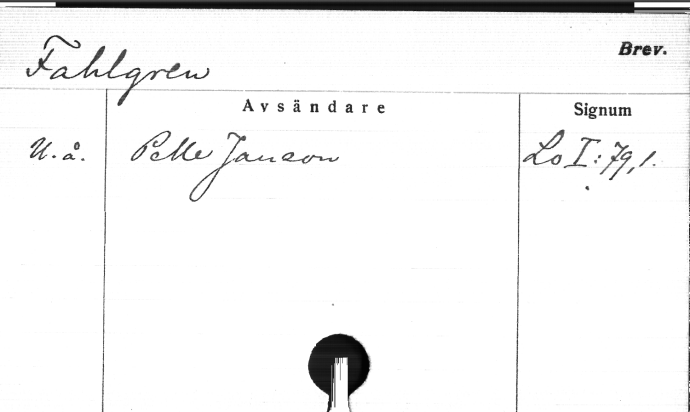 Brev.
Fahlgren
Avsändare Signum
U.å. Pelle Janson Lo I:79,1.